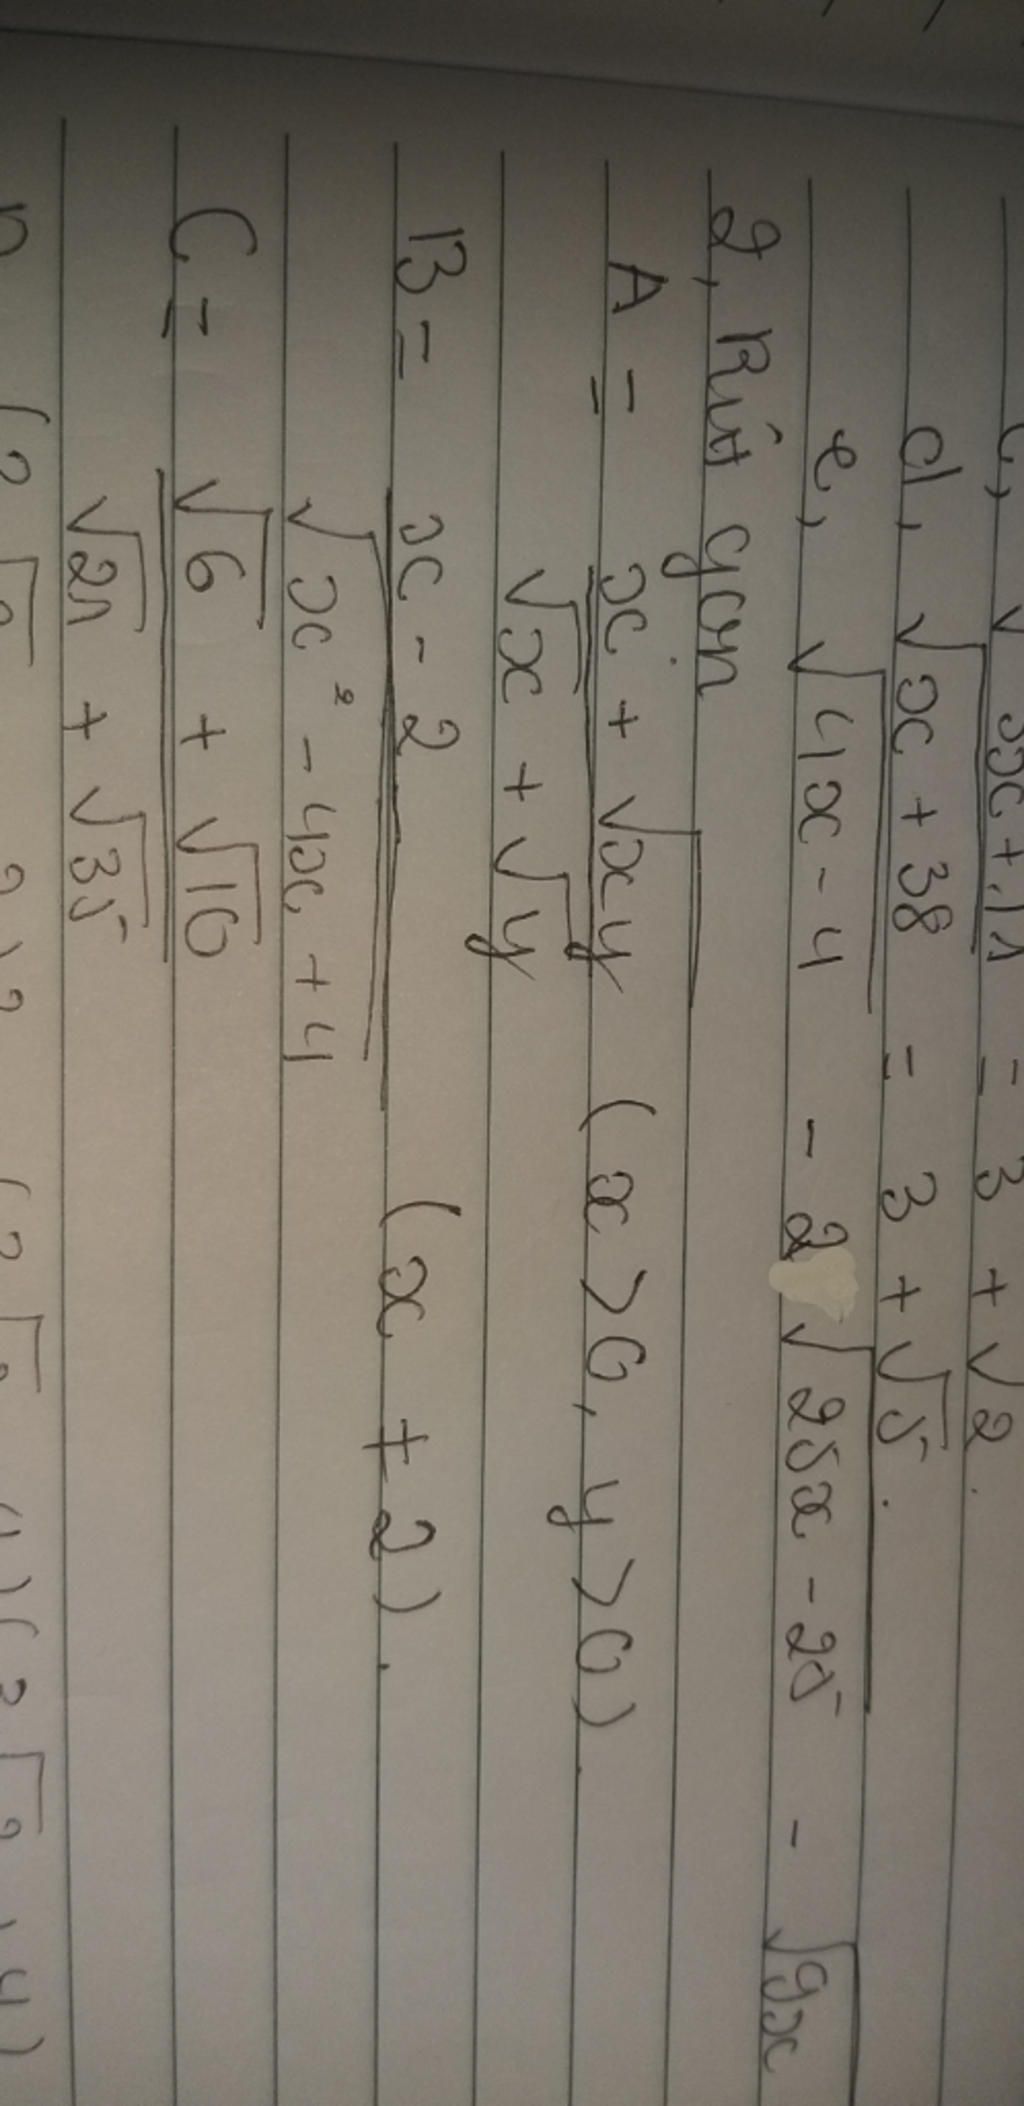 √3x+11 = 3 + √2.
d, √x+38 = 3 + √5.
e, √4x-4 - 2√25x-25 - √9x
2, Rút gọn
A = x + √xy / √x + √y (x > 0, y > 0).
B = x - 2 / √x² - 4x + 4 (x ≠ 2).
C = √6 + √10 / √21 + √35